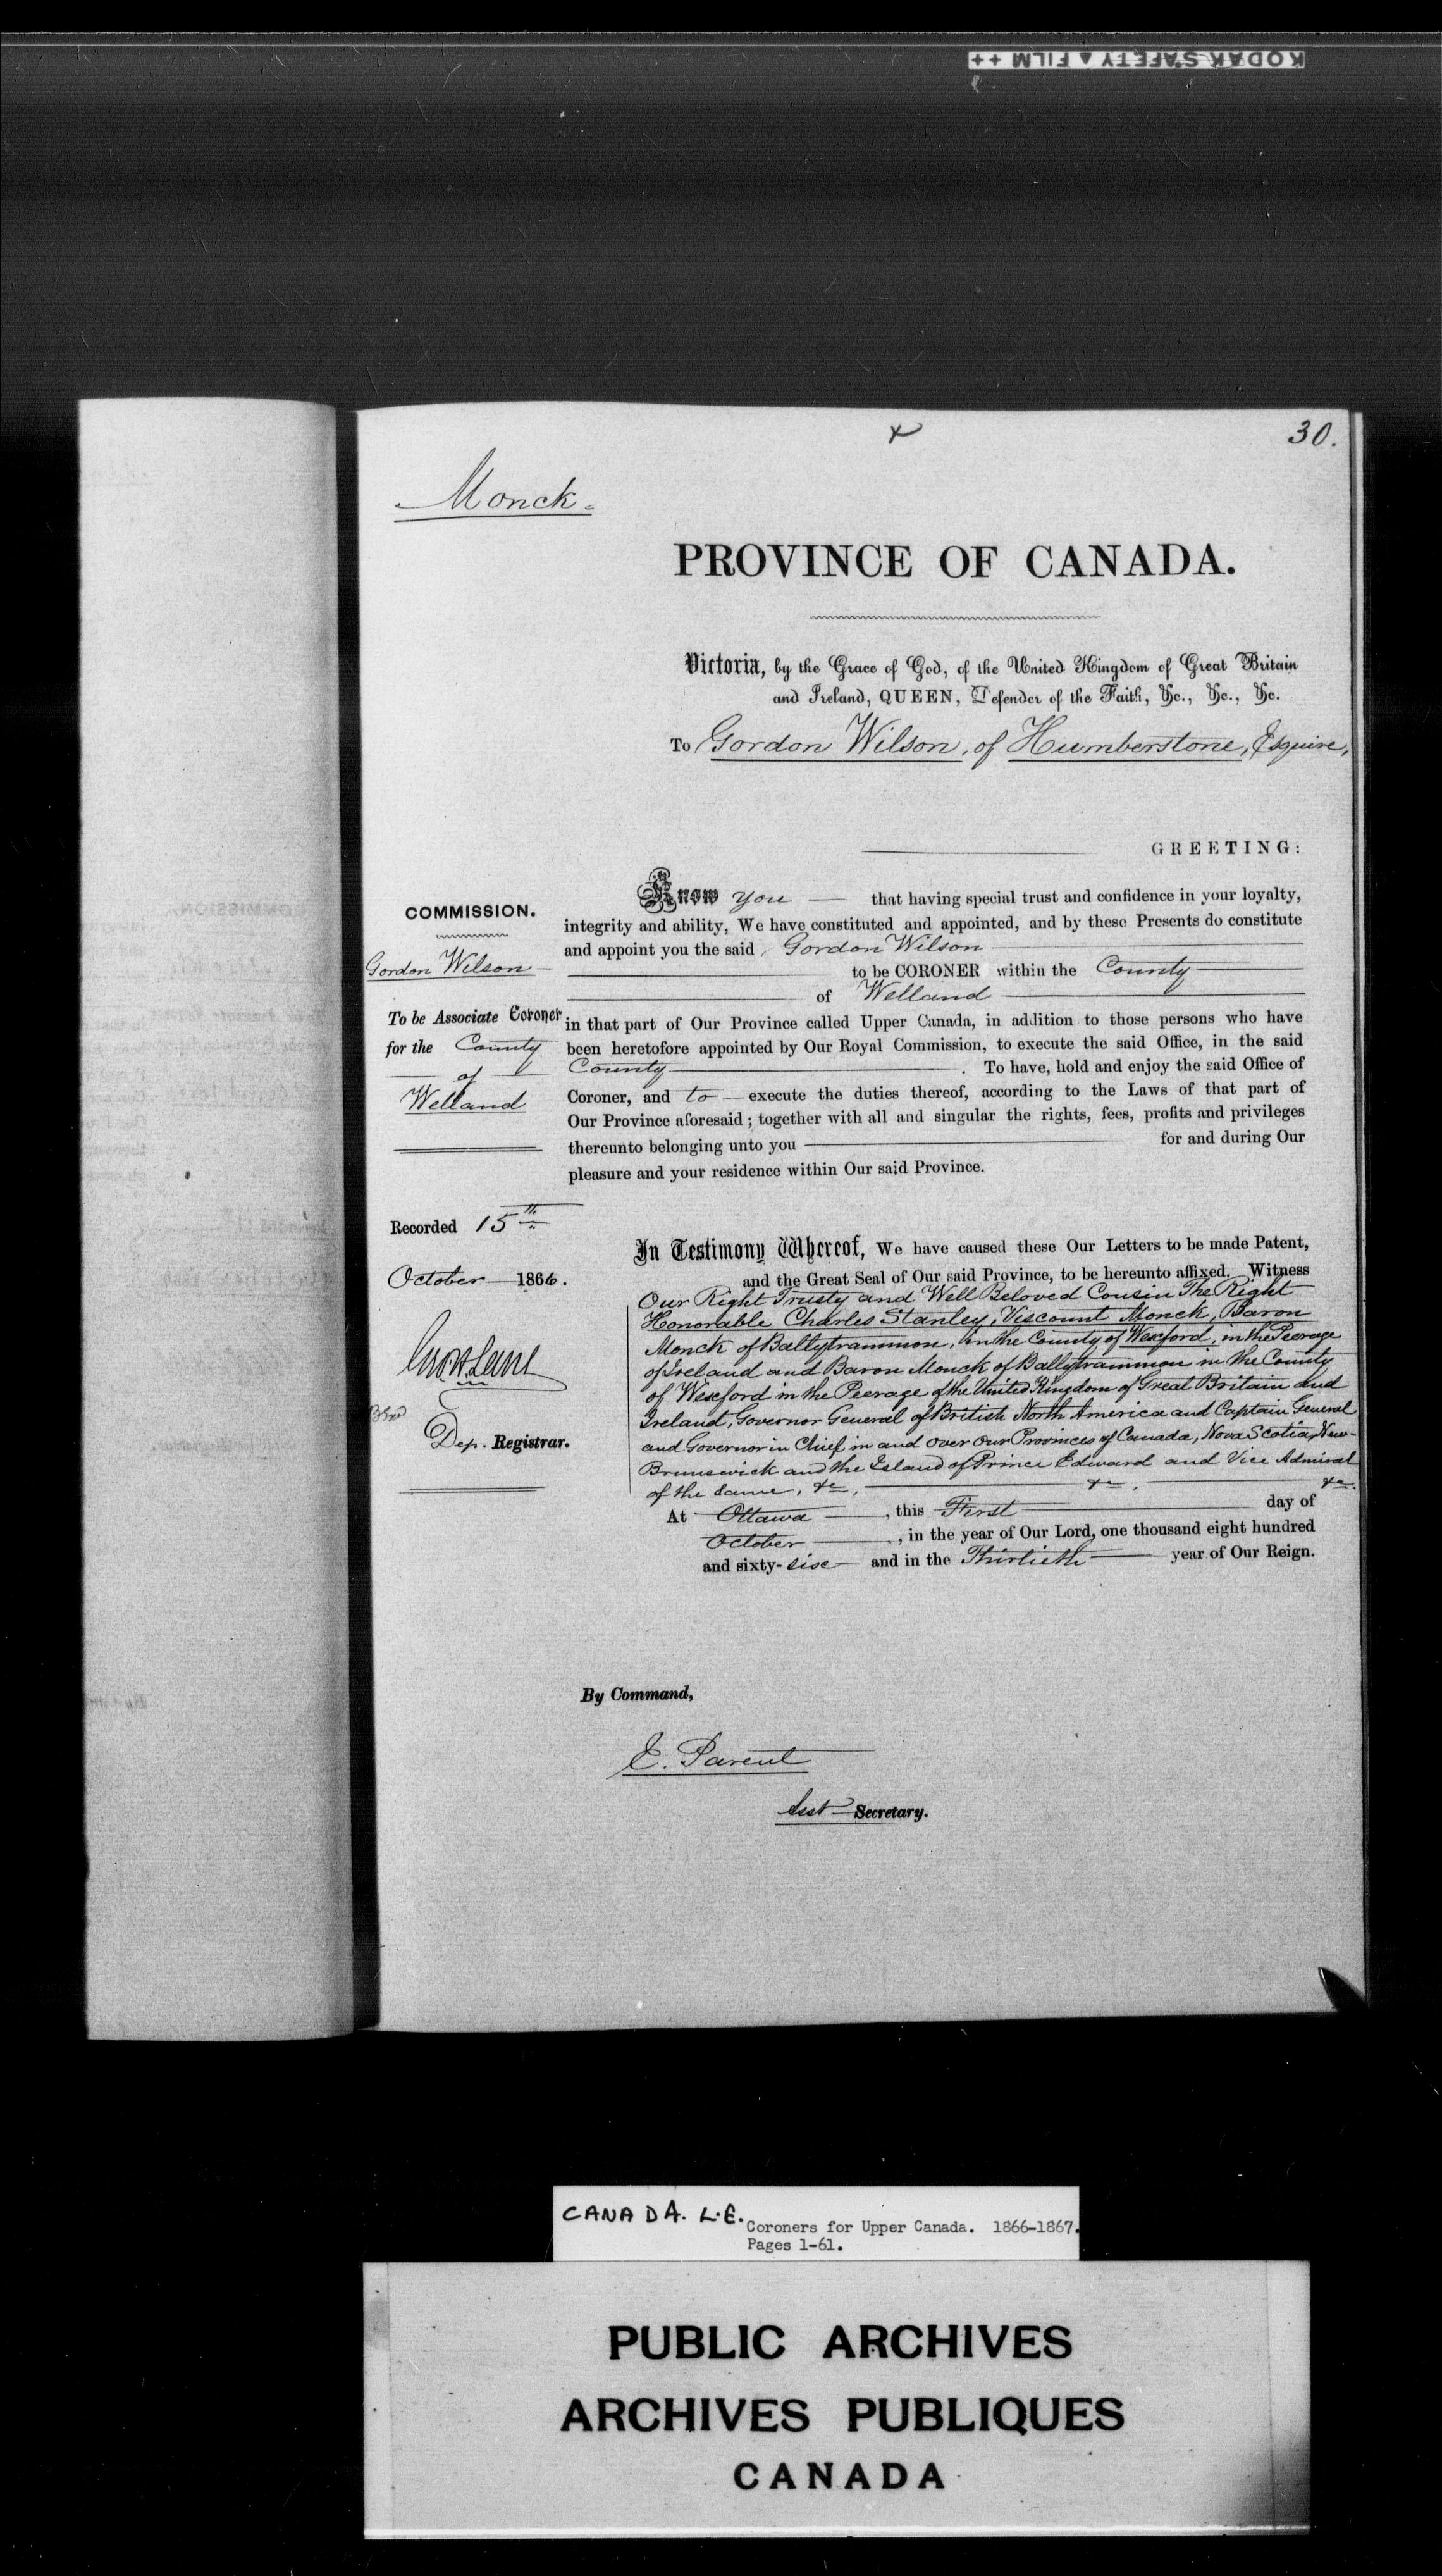 KODAK SAFETY FILM ++
30.
Monck.
PROVINCE OF CANADA.
Victoria, by the Grace of God, of the United Kingdom of Great Britain
and Ireland, QUEEN, Defender of the Faith, &c., &c., &c.
To Gordon Wilson, of Humberstone, Esquire,
GREETING:
COMMISSION.
Gordon Wilson
To be Associate Coroner
for the County
of
Welland
Recorded 15th
October 1866.
Dep. Registrar.
Know you that having special trust and confidence in your loyalty,
integrity and ability, We have constituted and appointed, and by these Presents do constitute
and appoint you the said Gordon Wilson
to be CORONER within the County
of Welland
in that part of Our Province called Upper Canada, in addition to those persons who have
been heretofore appointed by Our Royal Commission, to execute the said Office, in the said
County . To have, hold and enjoy the said Office of
Coroner, and to execute the duties thereof, according to the Laws of that part of
Our Province aforesaid ; together with all and singular the rights, fees, profits and privileges
thereunto belonging unto you for and during Our
pleasure and your residence within Our said Province.
In Testimony Whereof, We have caused these Our Letters to be made Patent,
and the Great Seal of Our said Province, to be hereunto affixed. Witness
Our Right Trusty and Well Beloved Cousin The Right
Honorable Charles Stanley, Viscount Monck, Baron
Monck of Ballytrammon, in the County of Wexford, in the Peerage
of Ireland and Baron Monck of Ballytrammon in the County
of Wexford in the Peerage of the United Kingdom of Great Britain and
Ireland, Governor General of British North America and Captain General
and Governor in Chief in and over Our Provinces of Canada, Nova Scotia, New-
Brunswick and the Island of Prince Edward and Vice Admiral
of the same, &c, &c, &c.
At Ottawa , this First day of
October , in the year of Our Lord, one thousand eight hundred
and sixty-six and in the Thirtieth year of Our Reign.
By Command,
E. Parent
Asst Secretary.
CANADA. L.E. Coroners for Upper Canada. 1866-1867.
Pages 1-61.
PUBLIC ARCHIVES
ARCHIVES PUBLIQUES
CANADA